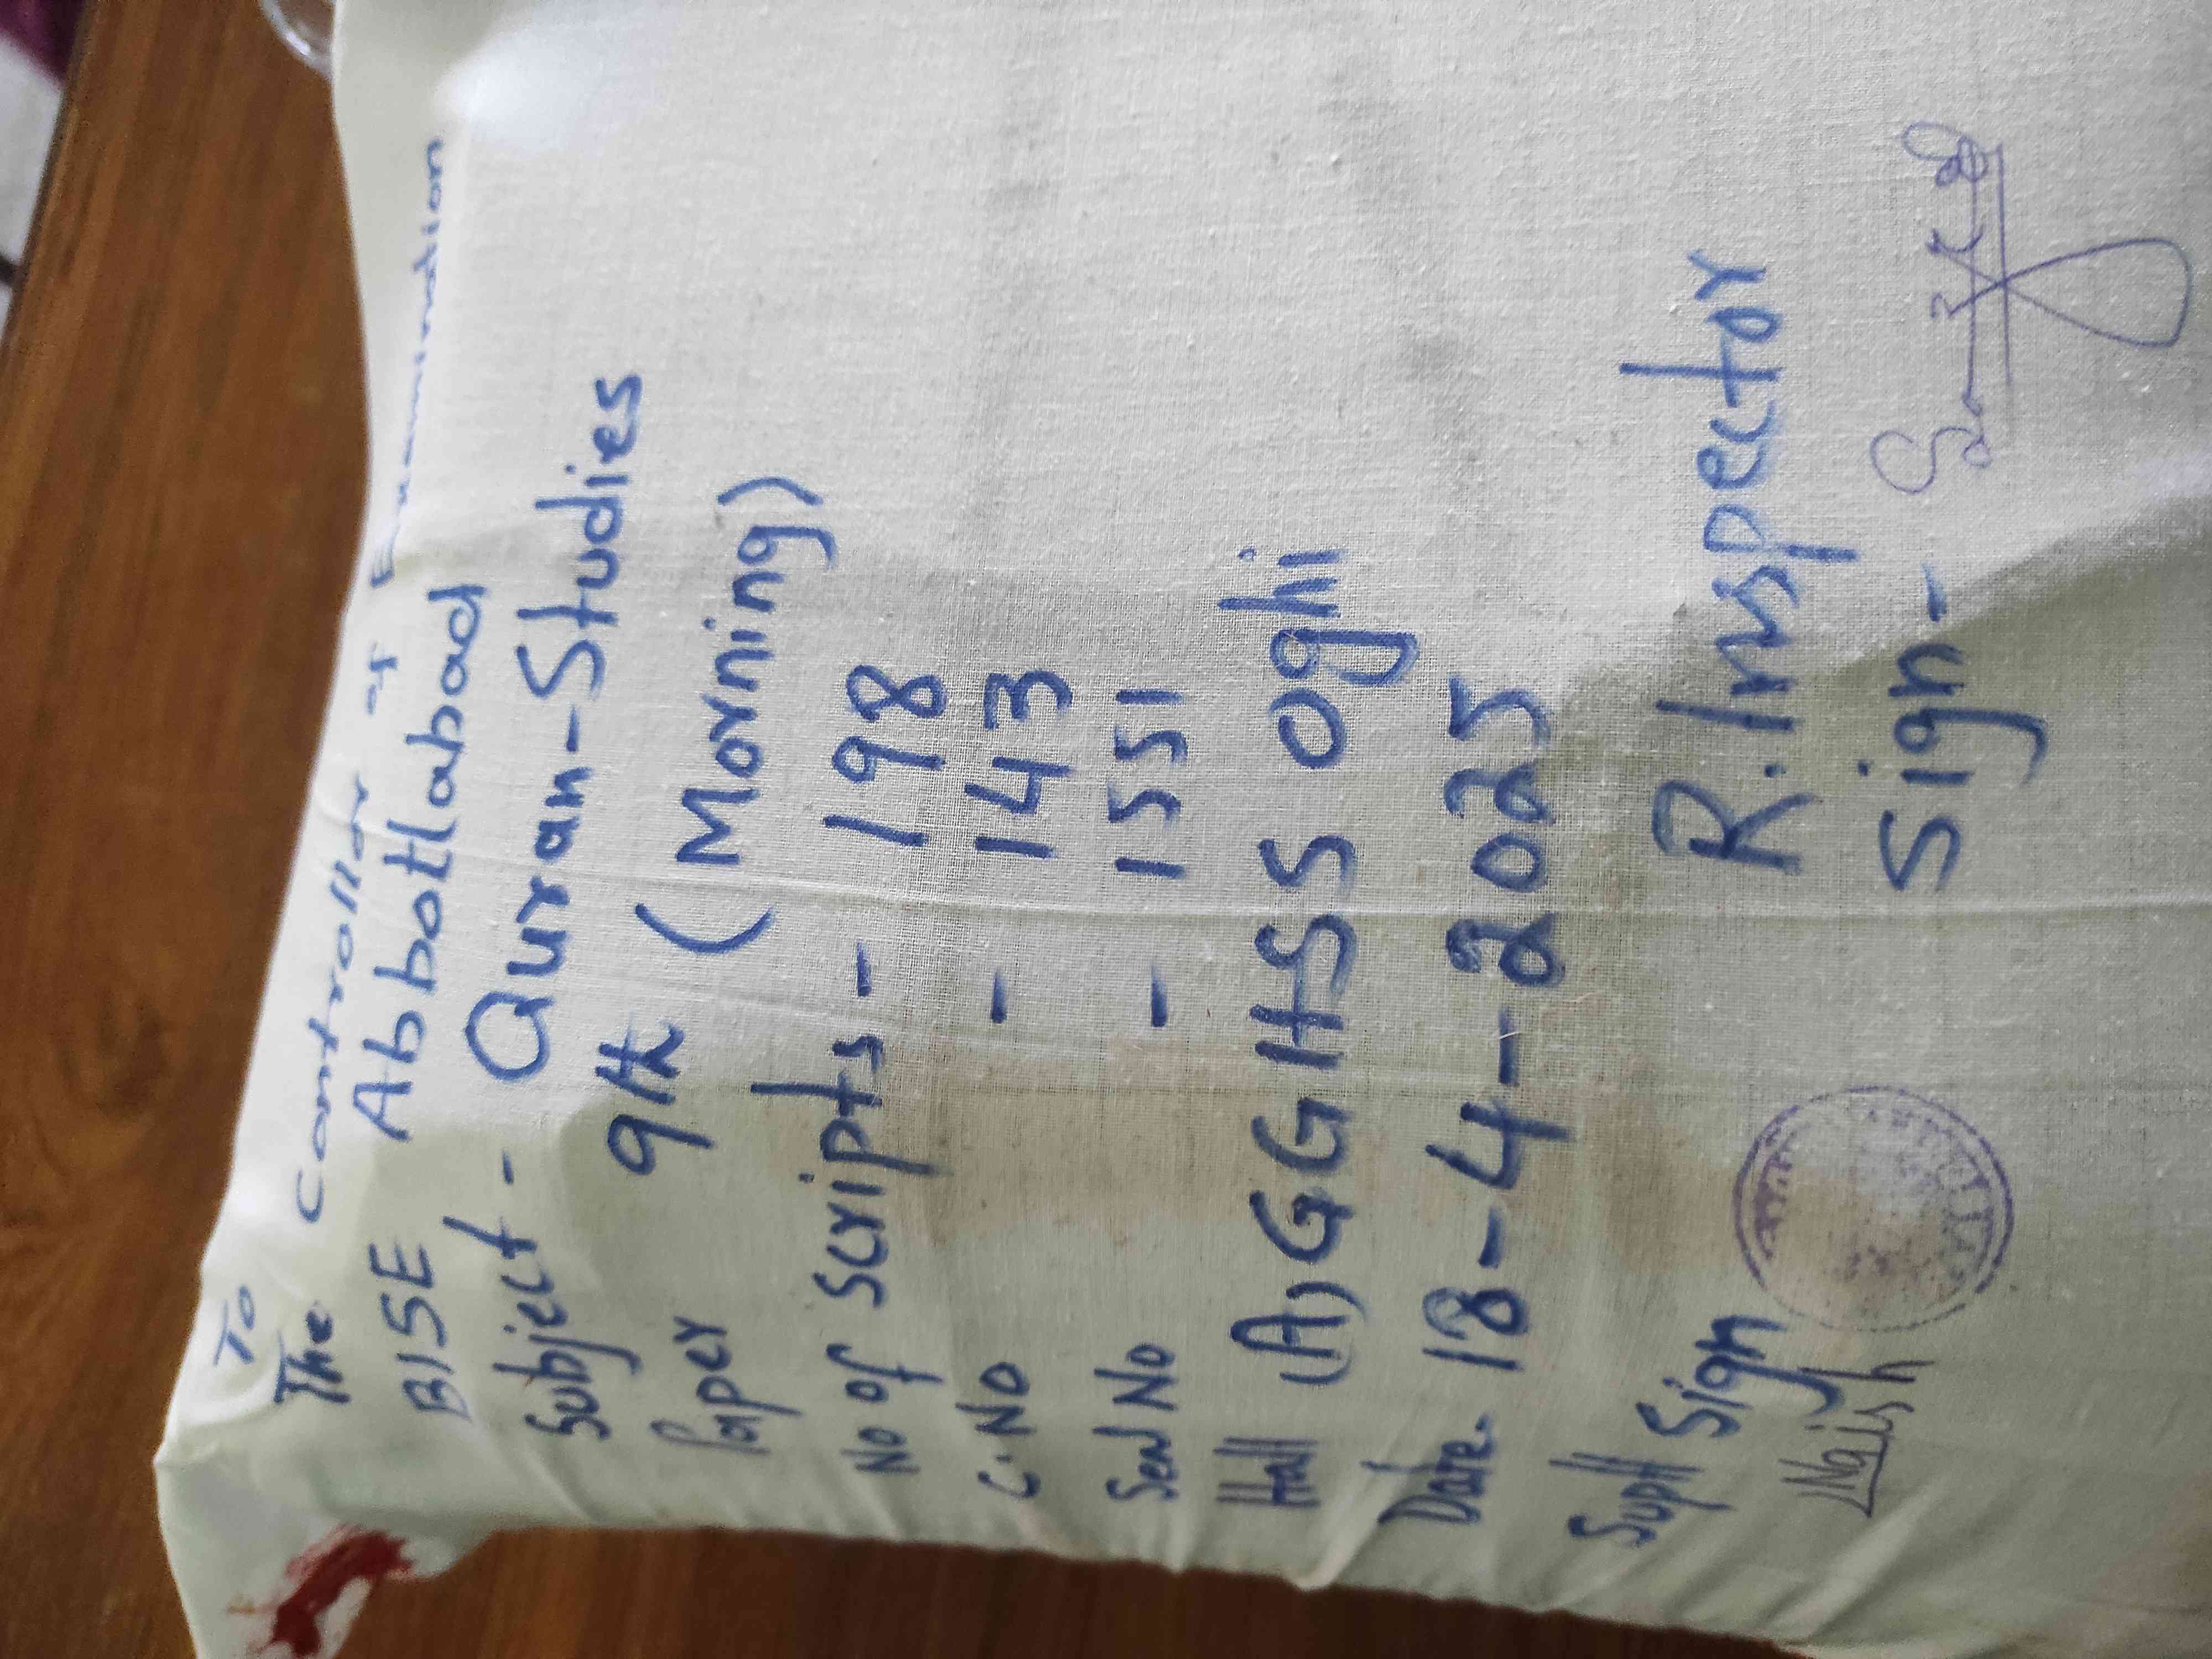 To
The Controller of Examination
BISE Abbottabad
Subject - Quran-Studies
Paper 9th (Morning)
No of scripts - 198
C.NO - 143
Sen No - 1551
Hall (A) GGHSS Oghi
Date. 18-4-2025
Supdt Sign R.Inspector
Sign-